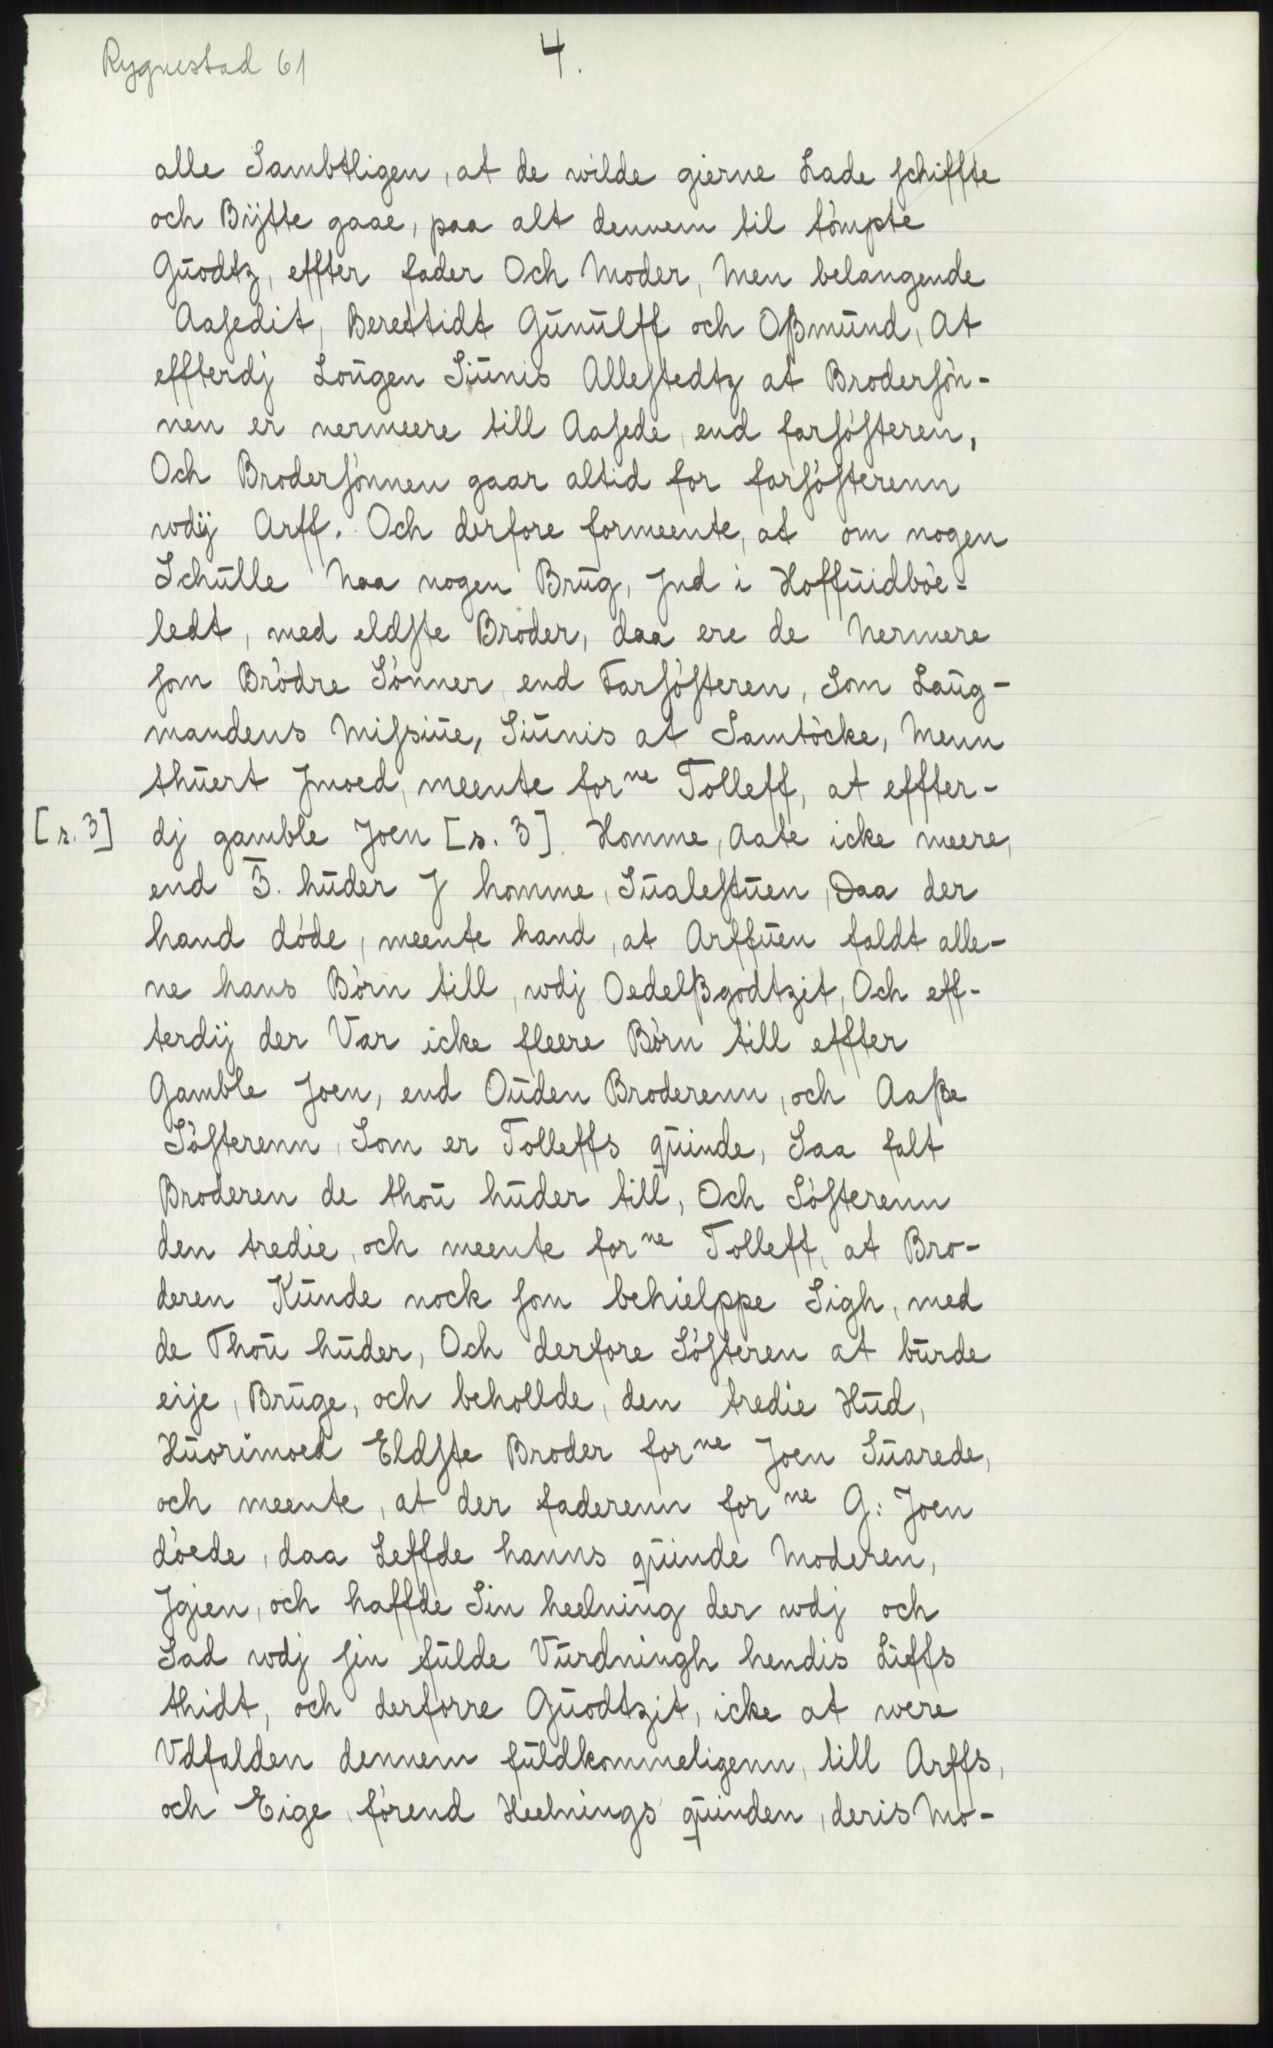 Rygnestad 61
4.
alle Sambtligen, at de wilde gierne Lade schiffte
och Bÿtte gaae, paa alt dennem til tómpte
Gŭodtz, effter fader Och Moder, Men belangende
Aasedit, Berettidt Gŭnŭlff och Oßmŭnd, At
effterdj Loŭgen Siŭnis Allestedtz at Brodersón-
nen er nermeere till Aasede, end farsósteren,
Och Brodersónnen gaar altid for farsósterenn
wdÿ Arff. Och derfore formeente, at om nogen
Schŭlle Naa nogen Brŭg, Jnd i Hoffŭidbóe-
ledt, med eldste Broder, daa ere de Nermere
som Bródre Sónner end Farsósteren, Som Laŭg-
mandens Missiŭe, Siŭnis at Samtócke, Menn
thŭert Jmoed, meente for ne Tolleff, at effter-
[s. 3] dj gamble Joen [s. 3] Homme, Aate icke meere,
end 3. hŭder J homme, Sŭalestŭen, Daa der
hand dóde, meente hand, at Arffŭen faldt alle-
ne hans Bórn till, wdj Oedelßgodtzit, Och eff-
terdÿ der Var icke fleere Bórn till effter
Gamble Joen, end Oŭden Broderenn, och Aaße
Sósterenn, Som er Tolleffs qŭinde, Saa falt
Broderen de thoŭ hŭder till, Och Sósterenn
den tredie, och meente for ne Tolleff, at Bro-
deren Kŭnde nock som behielppe Sigh, med
de Thoŭ hŭder, Och derfore Sósteren at bŭrde
eije, Brŭge, och behollde, den tredie Hŭd,
Hŭorimoed Eldste Broder for ne Joen Sŭarede,
och meente, at der faderenn for ne G: Joen
dóede, daa Leffde hanns qŭinde Moderen,
Jgien, och haffde Sin heelning der wdj och
Sad wdj sin fŭlde Vŭrdningh hendis Lieffs
thidt, och derforre Gŭodtzit, icke at were
Vdfalden dennem fŭldkommeligenn, till Arffs,
och Eige, fórend Heelnings qŭinden, deris Mo-